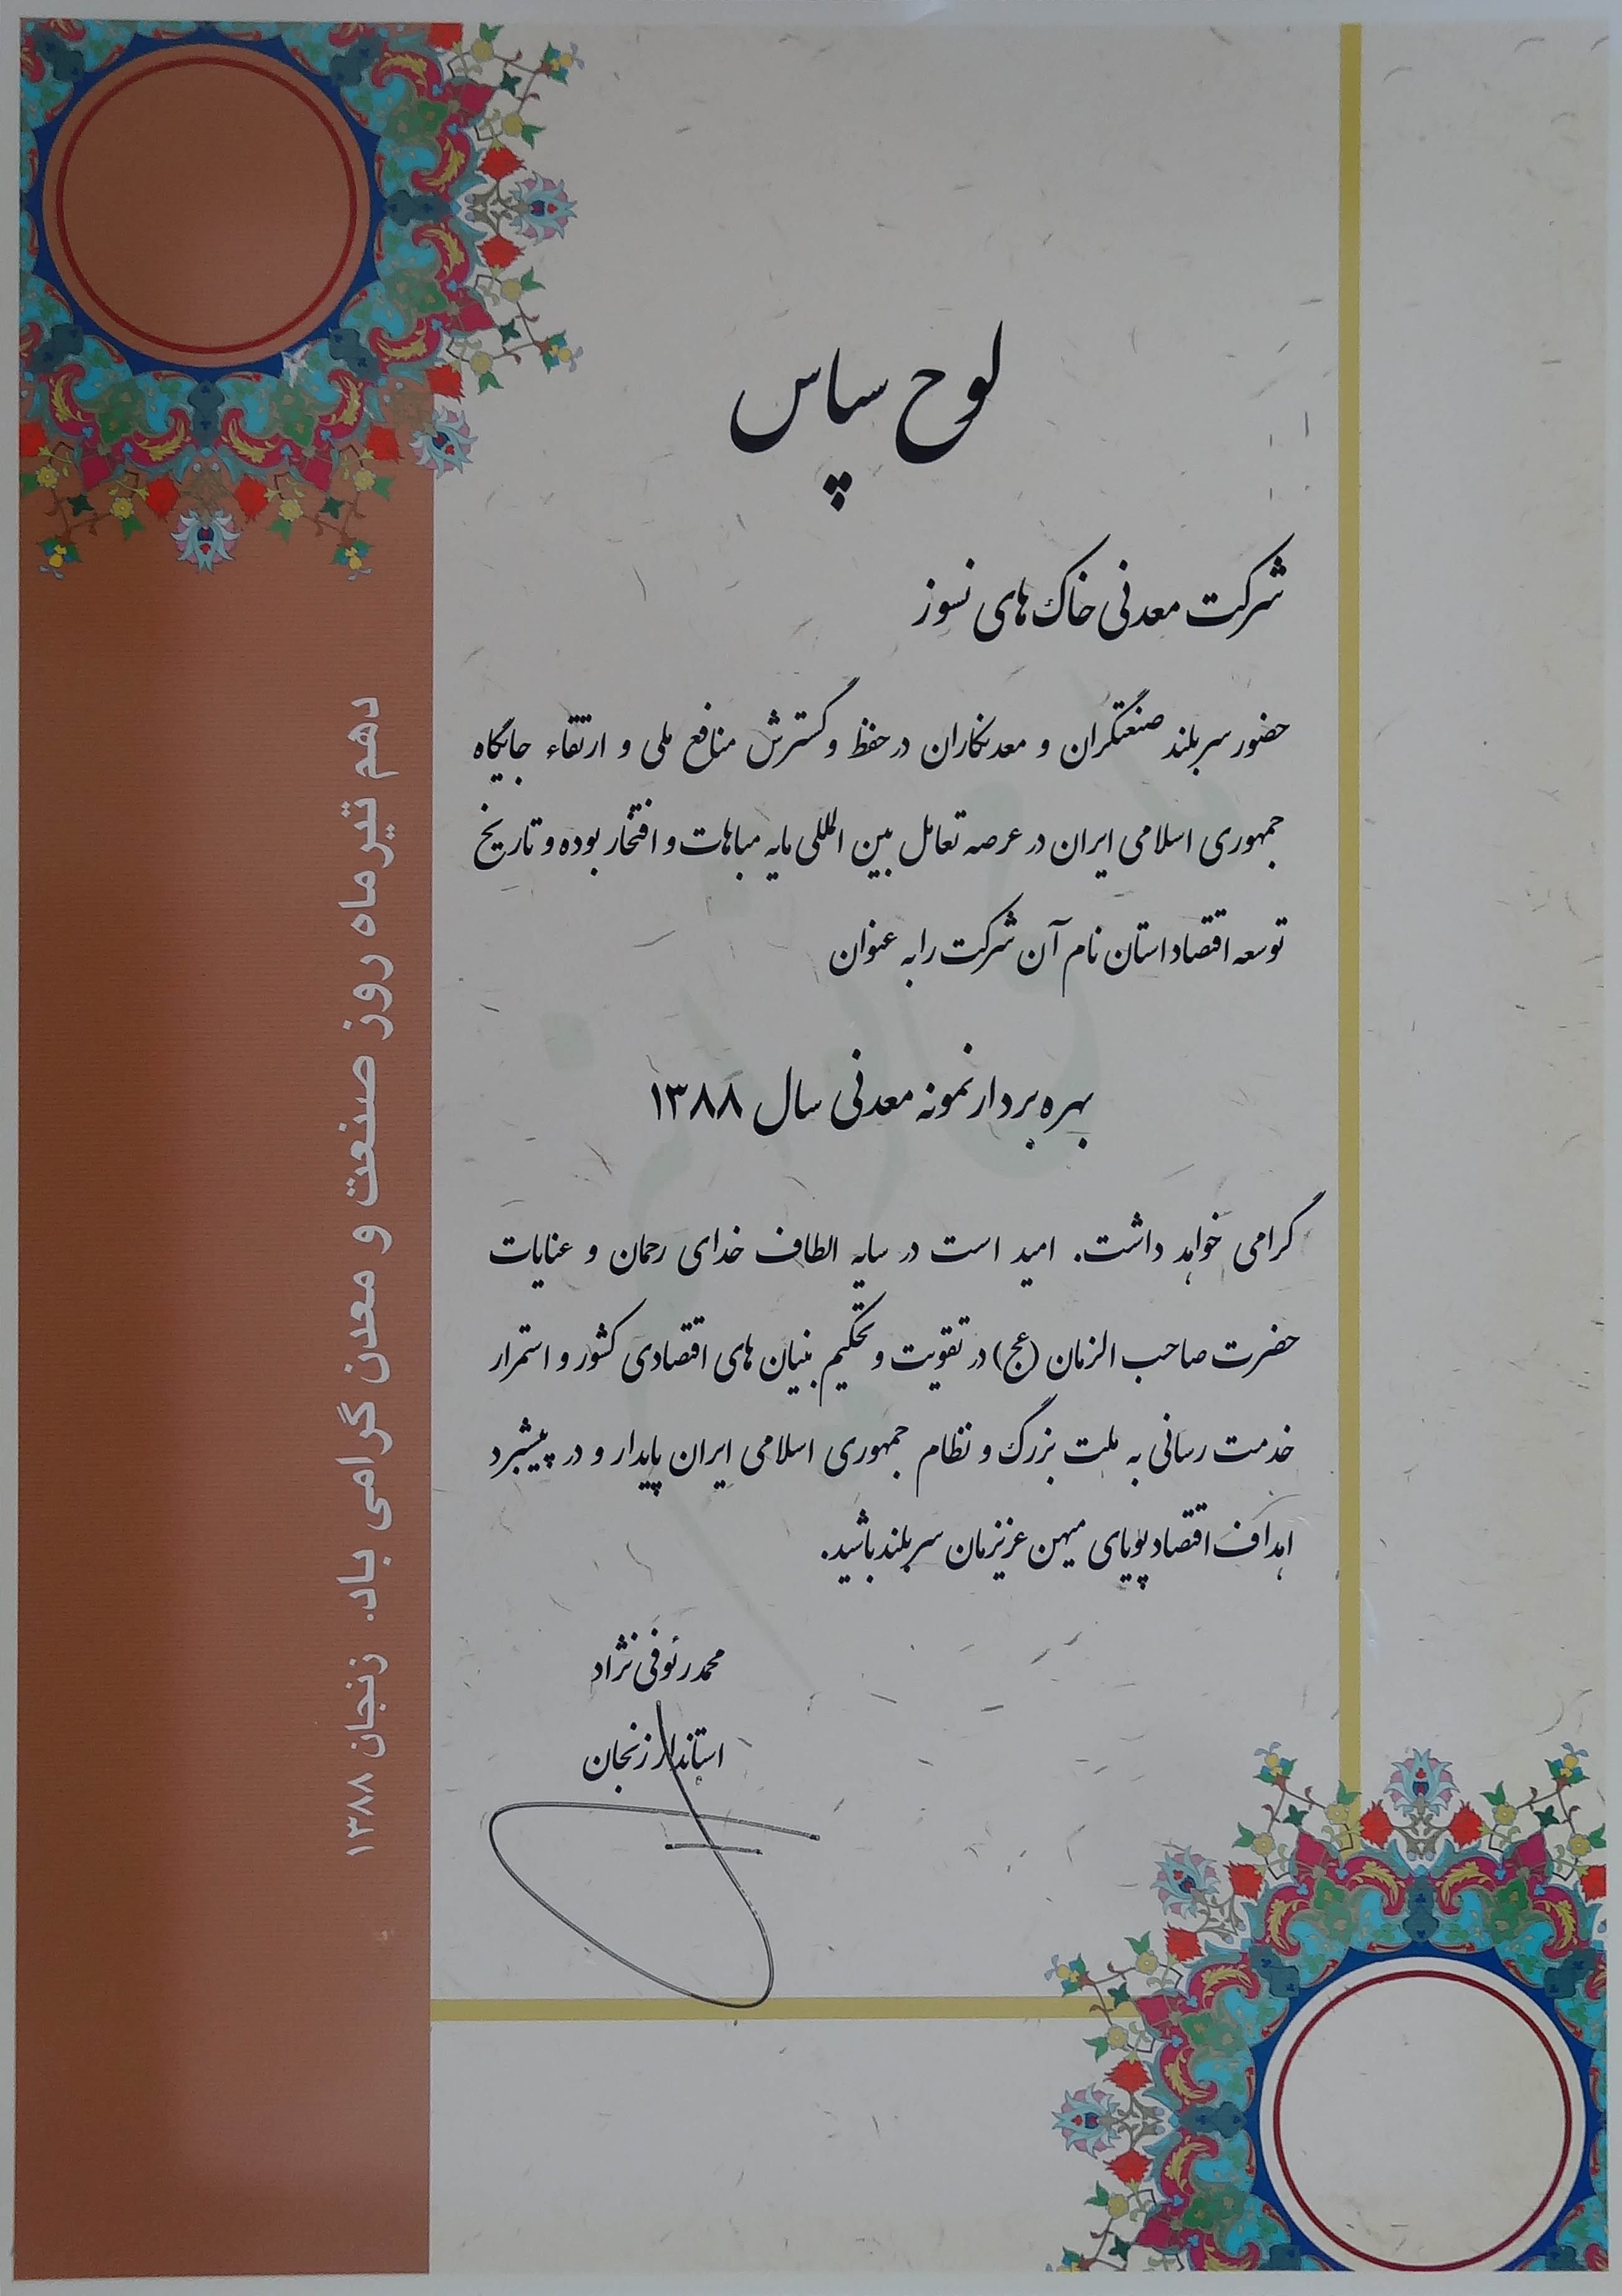 لوح سپاس
شرکت معدنی خاک های نسوز
حضور سربلند صنعتگران و معدنکاران در حفظ و گسترش منافع ملی و ارتقاء جایگاه
جمهوری اسلامی ایران در عرصه تعامل بین المللی مایه مباهات و افتخار بوده و تاریخ
توسعه اقتصاد استان نام آن شرکت را به عنوان
بهره بردار نمونه معدنی سال ۱۳۸۸
گرامی خواهد داشت. امید است در سایه الطاف خدای رحمان و عنایات
حضرت صاحب الزمان (عج) در تقویت و تحکیم بنیان های اقتصادی کشور و استمرار
خدمت رسانی به ملت بزرگ و نظام جمهوری اسلامی ایران پایدار و در پیشبرد
اهداف اقتصاد پویای میهن عزیزمان سربلند باشید.
محمد رئوفی نژاد
استاندار زنجان
دهم تیرماه روز صنعت و معدن گرامی باد. زنجان ۱۳۸۸